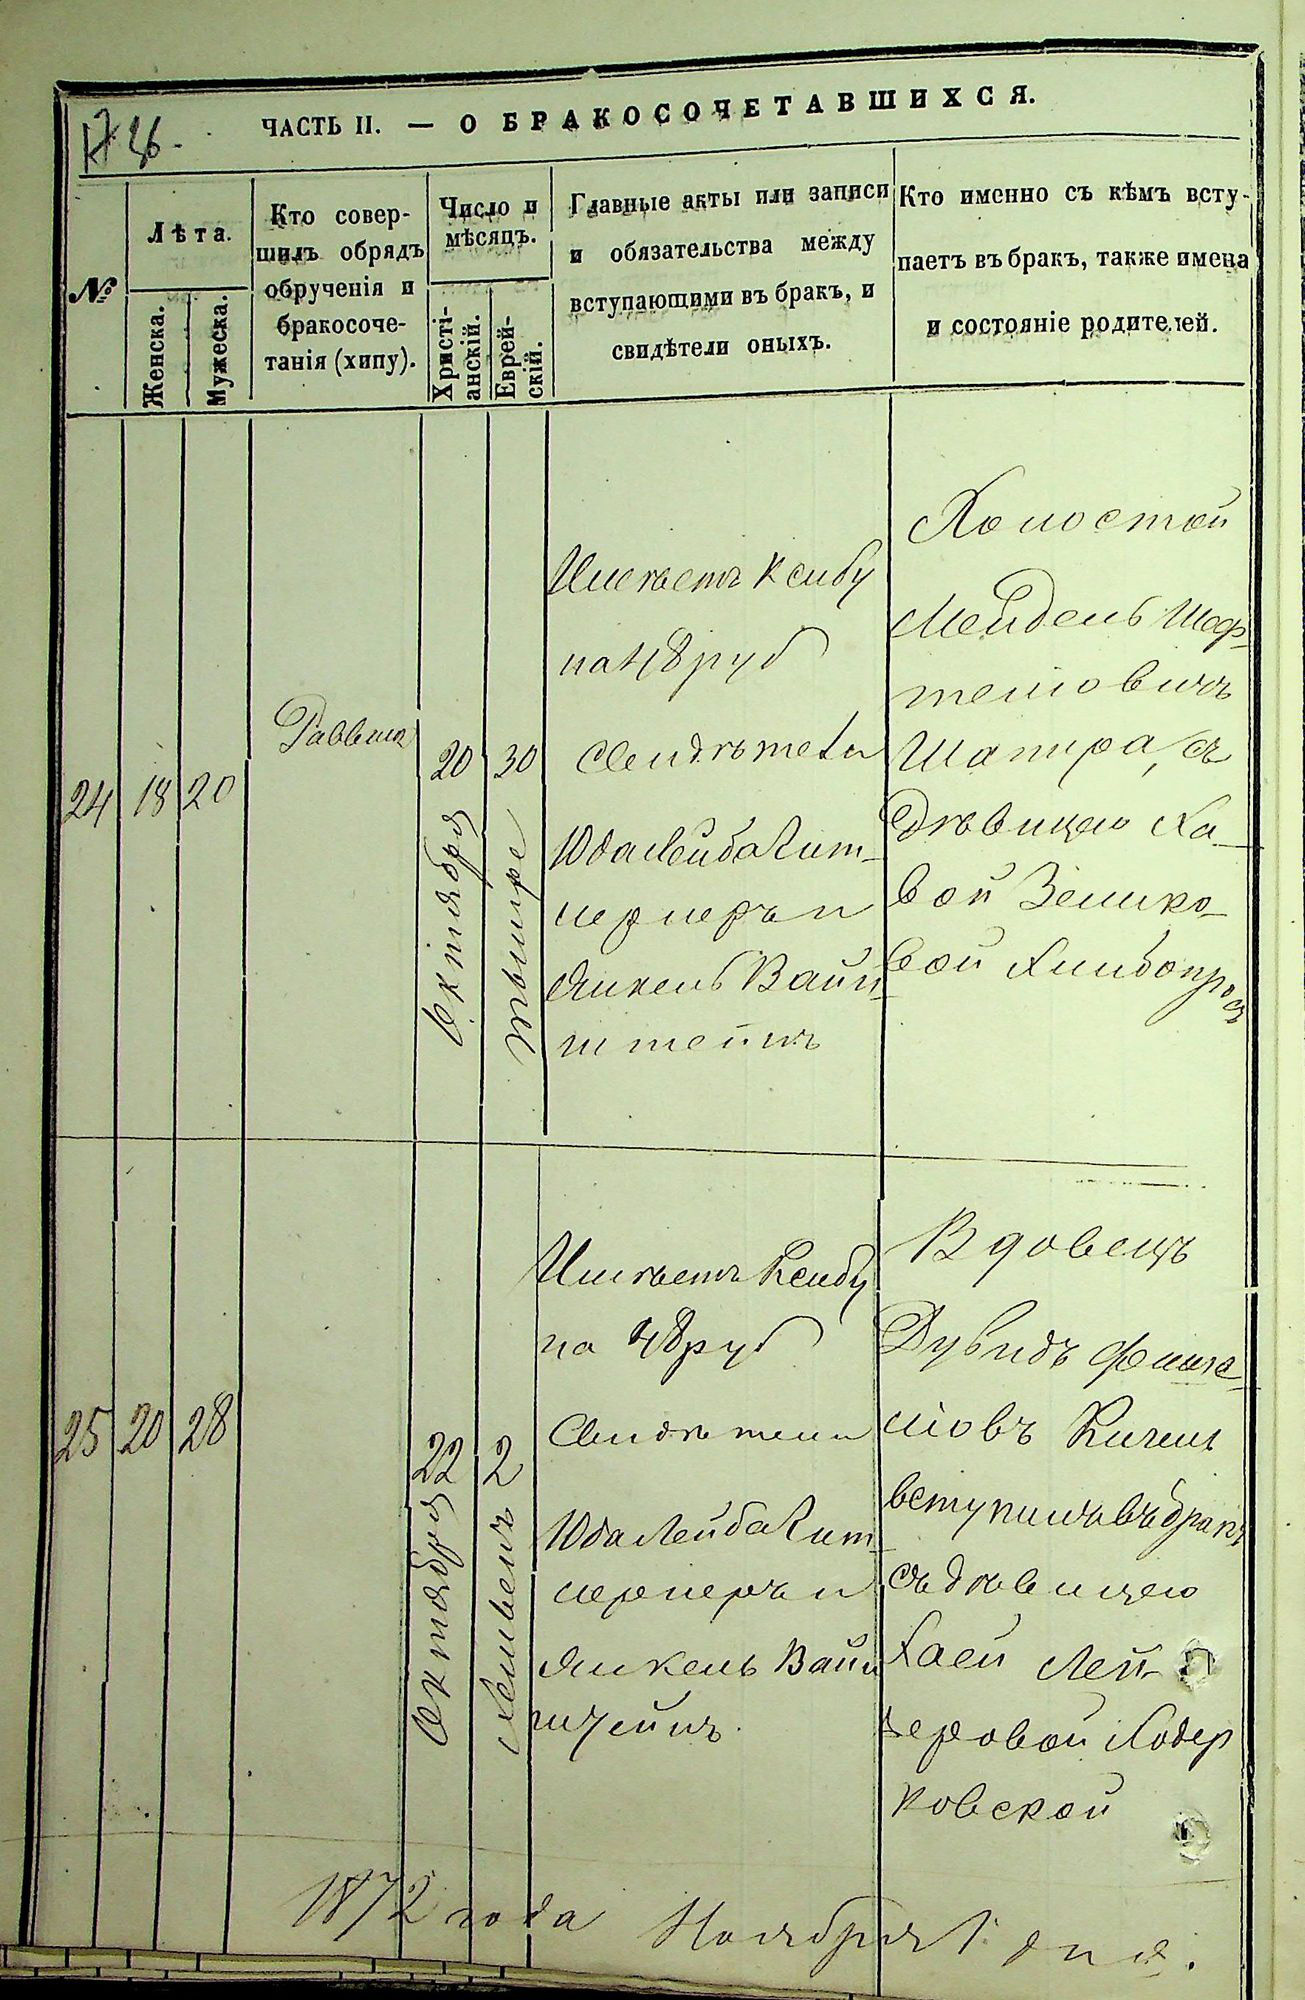 ЧАСТЬ II. — О БРАКОСОЧЕТАВШИХСЯ.
№
Лѣта.
Женска.
Мужеска.
Кто совер-
шилъ обрядъ
обрученія и
бракосоче-
танія (хипу).
Число и
мѣсяцъ.
Христі-
анскій.
Еврей-
скій.
Главные акты или записи
и обязательства между
вступающими въ бракъ, и
свидѣтели оныхъ.
Кто именно съ кѣмъ всту-
паетъ въ бракъ, также имена
и состояніе родителей.
24
18
20
Раввинъ
20
Октября
30
тышре
на 48 руб
Свидѣтели
Юда Лейба Кит-
нернеръ и
Янкель Вайн-
штейнъ
Холостой
Мендель Шеф-
телiовичъ
Шапира, съ
дѣвицею Ха-
вой Зелико-
вой
25
20
28
22
Октября
2
Хешвенъ
на 48 руб
Свидѣтели
Юда Лейба Кит-
нернеръ и
Янкель Вайн
штейнъ.
Вдовецъ
Дувидъ
вступилъ въ бракъ
съ дѣвицею
Хаей Лей-
зеровой Ходер
ковской
1872 года Ноября 1 дня.